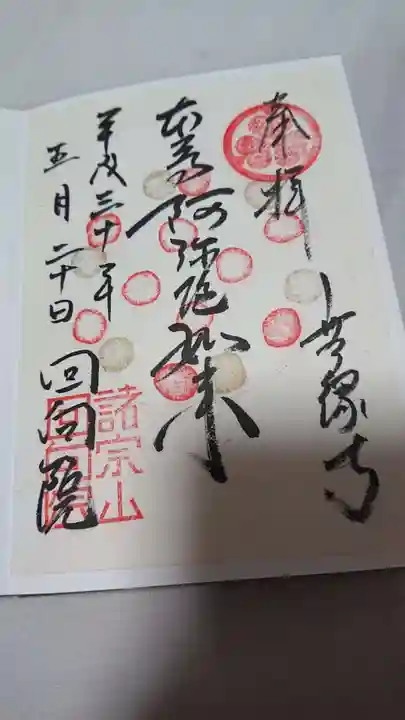 奉拝
無縁寺
本尊阿弥陀如来
平成三十年
五月二十日
回向院
諸宗山
回向院